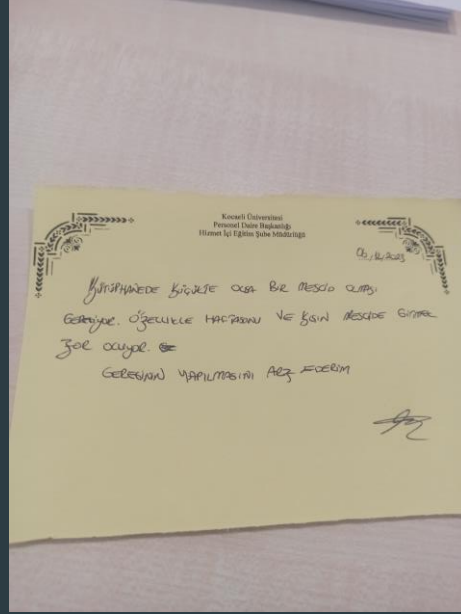 Kocaeli Üniversitesi
Personel Daire Başkanlığı
Hizmet İçi Eğitim Şube Müdürlüğü
06/12/2023
KÜTÜPHANEDE KÜÇÜKTE OLSA BİR MESCİD OLMASI
GEREKİYOR. ÖZELLİKLE HAFTASONU VE KIŞIN MESCİDE GİTMEK
ZOR OLUYOR.
GEREĞİNİN YAPILMASINI ARZ EDERİM